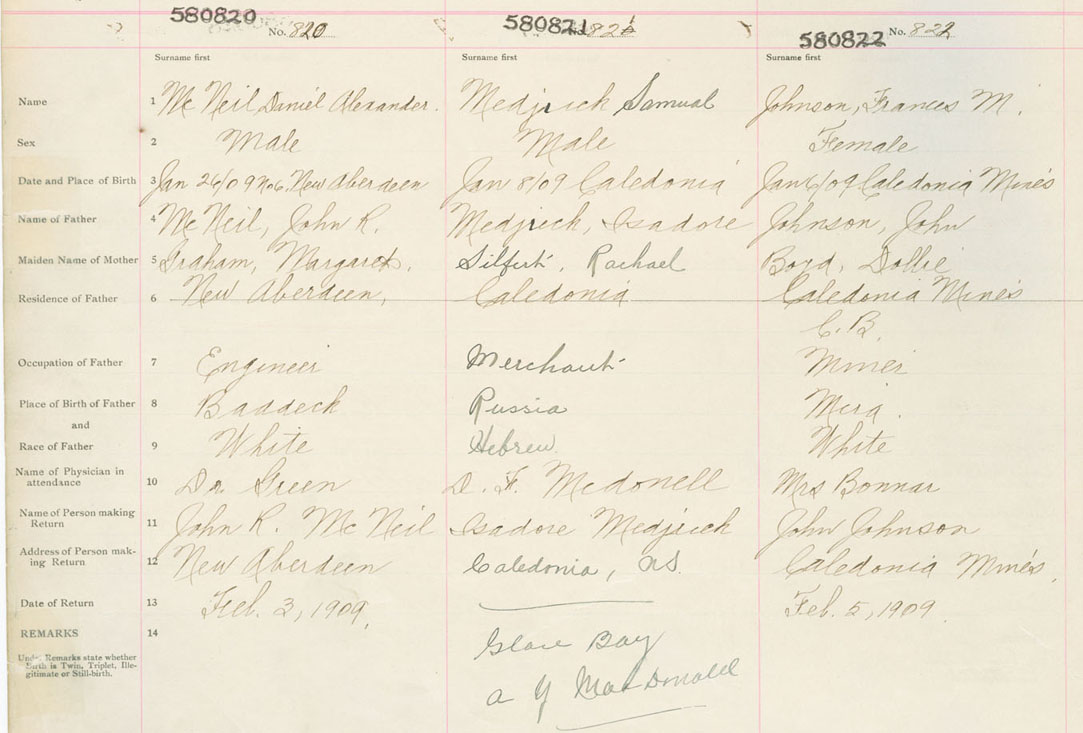 580820 No. 820 580821 No. 821 580822 No. 822
Surname first Surname first Surname first
Name 1 Mc Neil Daniel Alexander. Medjuck Samual Johnson, Frances M.
Sex 2 Male Male Female
Date and Place of Birth 3 Jan 26/09 No6. New Aberdeen Jan 8/09 Caledonia Jan 6/09 Caledonia Mines
Name of Father 4 Mc Neil, John R. Medjuck, Isadore Johnson, John
Maiden Name of Mother 5 Graham, Margaret. Silfert, Rachael Boyd, Dollie
Residence of Father 6 New Aberdeen, Caledonia Caledonia Mines
C.B.
Occupation of Father 7 Engineer Merchant Miner
Place of Birth of Father 8 Baddeck Russia Mira.
and
Race of Father 9 White Hebrew White
Name of Physician in
attendance 10 Dr. Green D. F. Mcdonell Mrs Bonnar
Name of Person making
Return 11 John R. Mc Neil Isadore Medjuck John Johnson
Address of Person mak-
ing Return 12 New Aberdeen Caledonia, NS. Caledonia Mines.
Date of Return 13 Feb. 3, 1909. Feb. 5, 1909
REMARKS 14
Under Remarks state whether
Birth is Twin, Triplet, Ille-
gitimate or Still-birth.
Glace Bay
A Y MacDonald